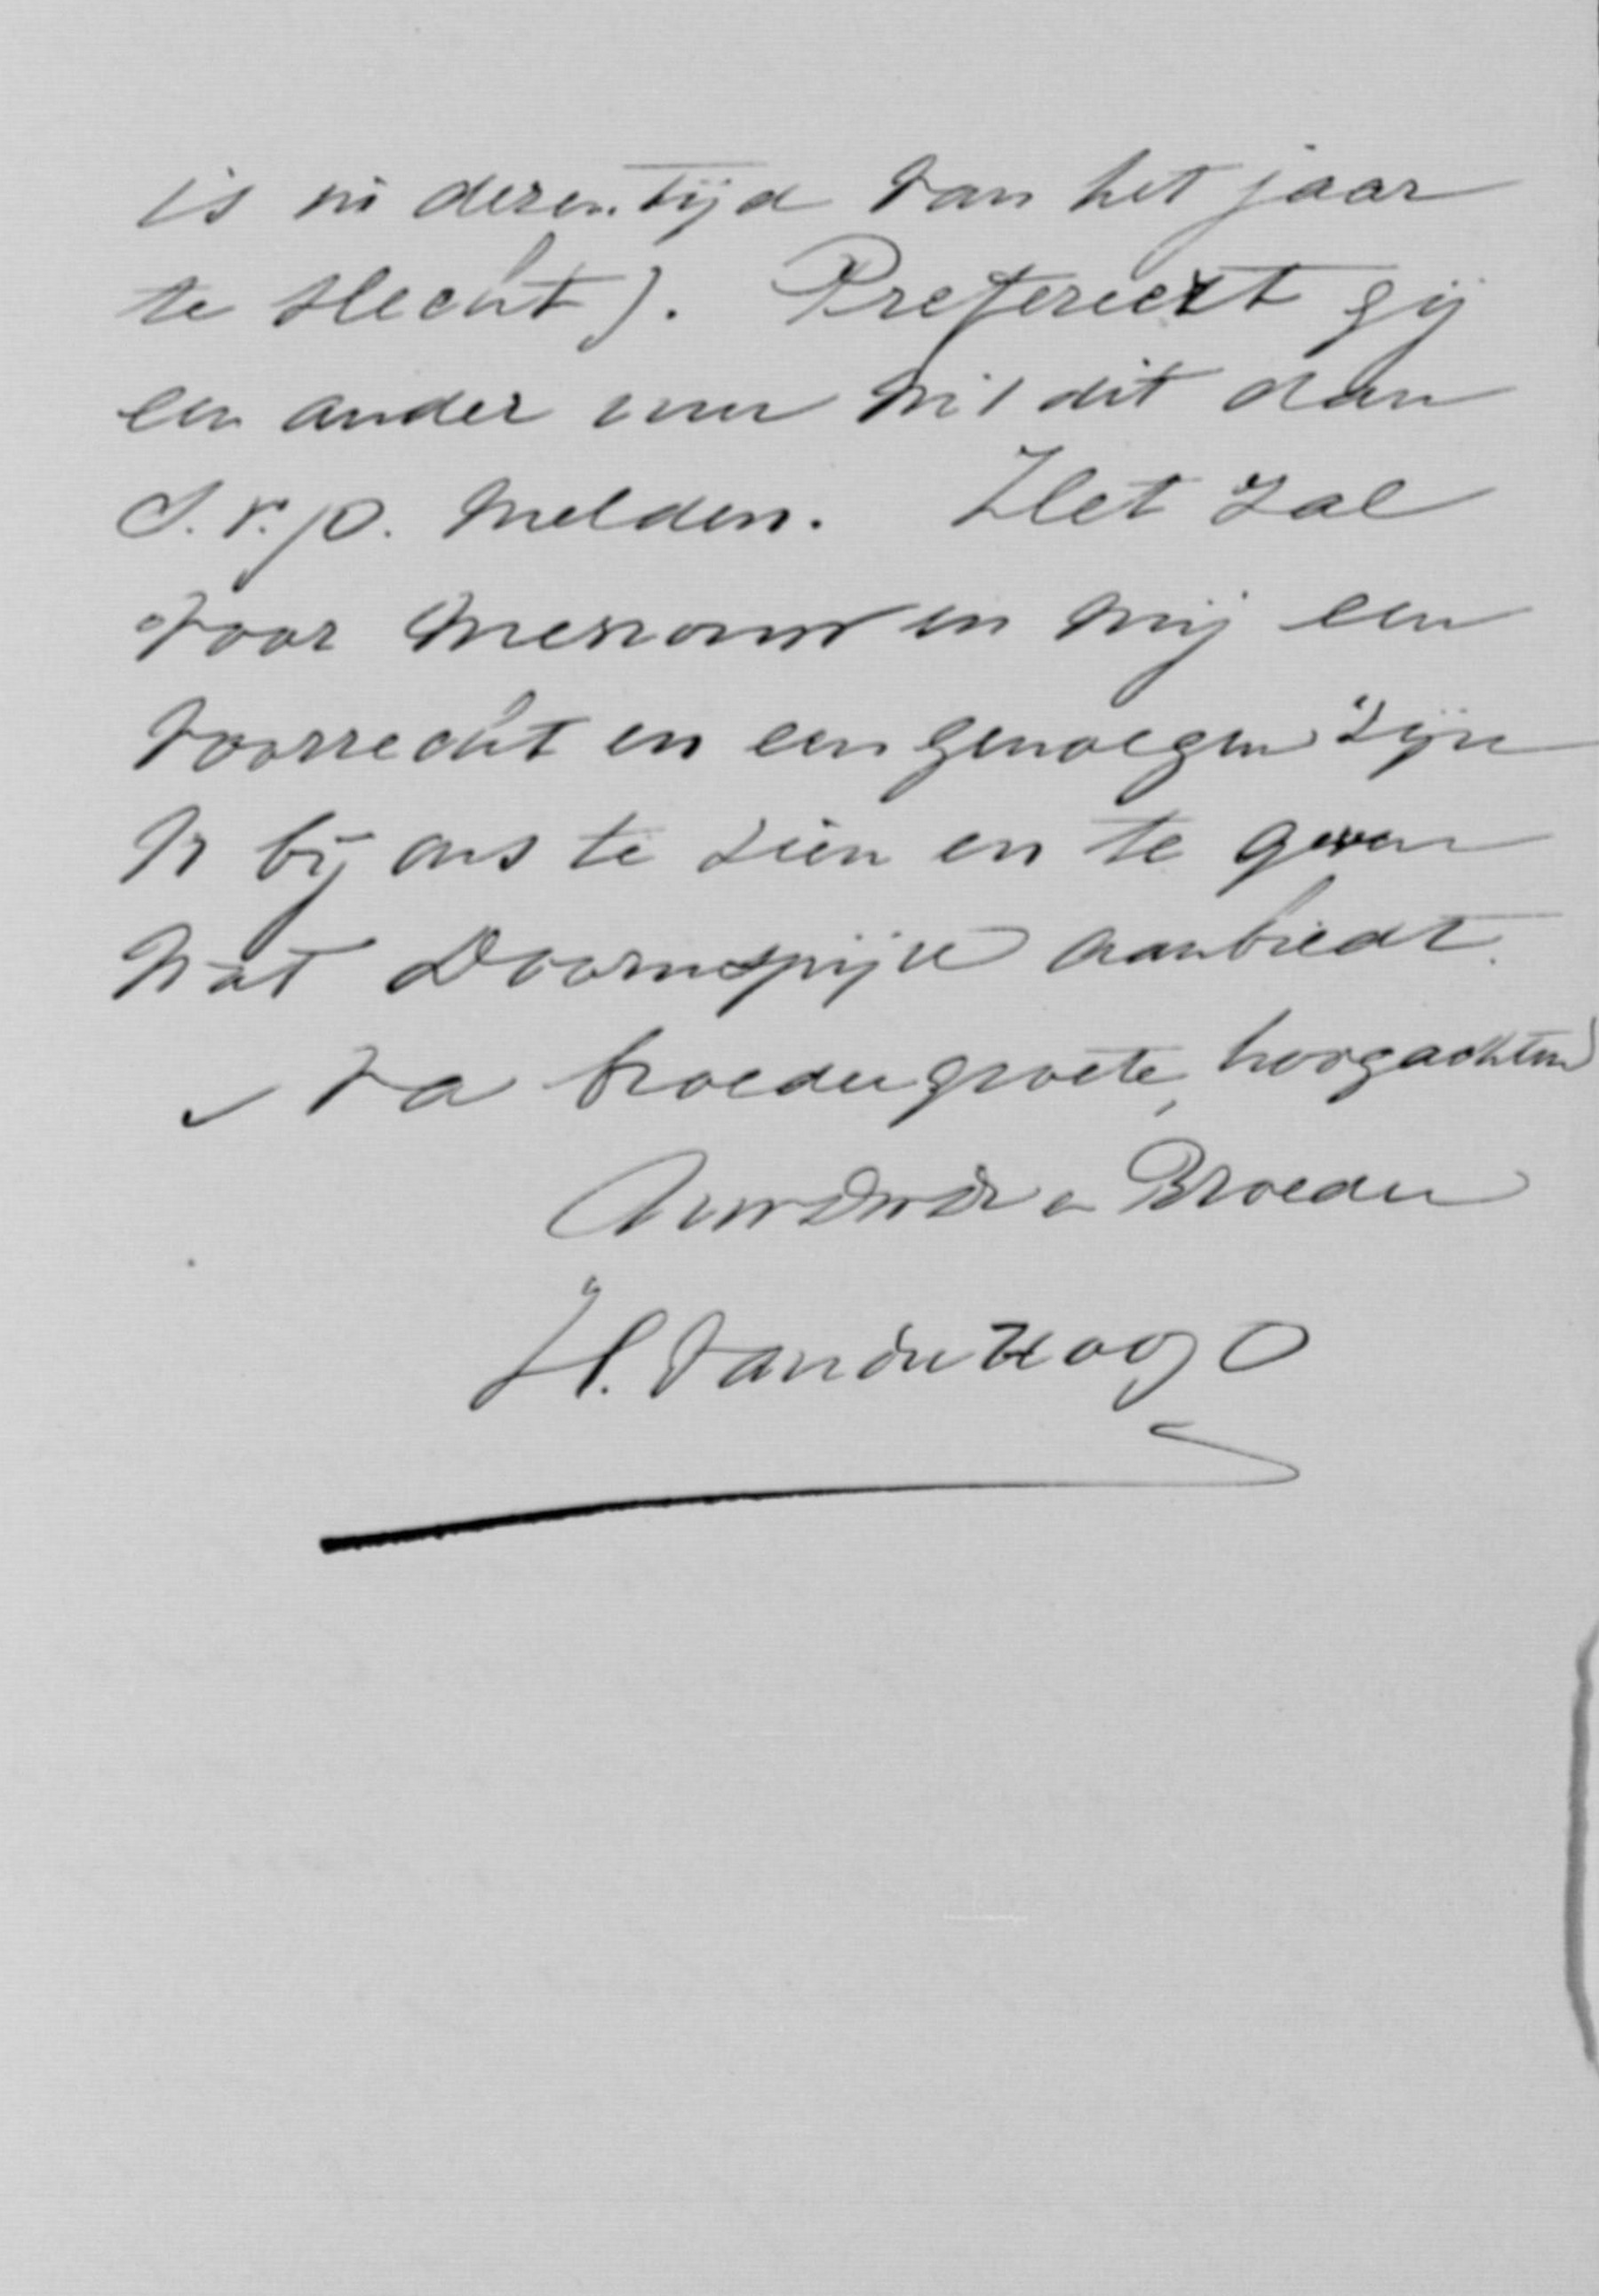 is in dezen tijd van het jaar
te slecht). Prefereert gij
een ander uur wil dit dan
S.v.p. melden. Het zal
voor mevrouw en mij een
voorrecht en een genoegen zijn
U bij ons te zien en te geven
wat Doornspijk aanbiedt.
Na broedergroete, hoogachtend
Uw Dw Dr en Broeder
H. van der Hoog